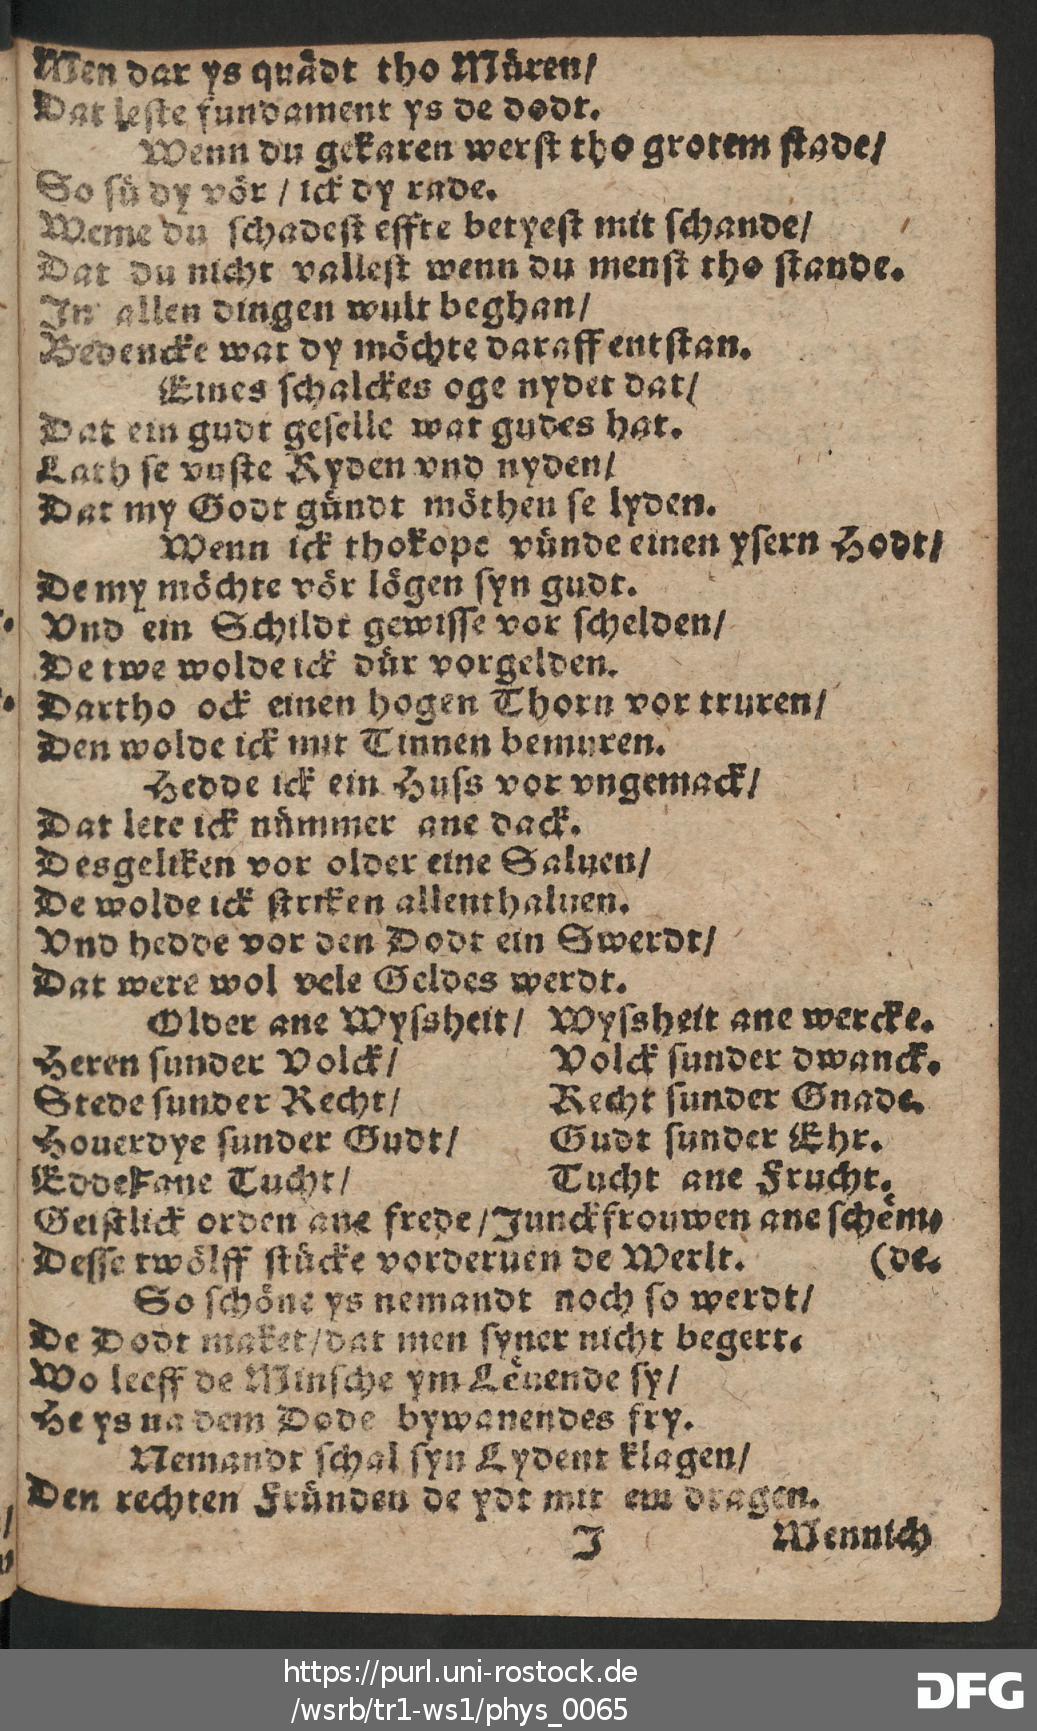 Wen dar ys quådt tho Mûren/
Dat leste fundament ys de dodt.
Wenn du gekaren werst tho grotem stade/
So sü dy vör / ick dy rade.
Weme du schadest effte betyest mit schande/
Dat du nicht vallest wenn du menst tho stande.
In allen dingen wult beghan/
Bedencke wat dy möchte daraff entstan.
Eines schalckes oge nydet dat/
Dat ein gudt geselle wat gudes hat.
Lath se vuste Ryden vnd nyden/
Dat my Godt gündt möthen se lyden.
Wenn ick thokope vünde einen ysern Hodt/
De my möchte vör lögen syn gudt.
Vnd ein Schildt gewisse vor schelden/
De twe wolde ick dür vorgelden.
Dartho ock einen hogen Thorn vor truren/
Den wolde ick mit Tinnen bemuren.
Hedde ick ein Huss vor vngemack/
Dat lete ick nümmer ane dack.
Desgeliken vor older eine Saluen/
De wolde ick striken allenthaluen.
Vnd hedde vor den Dodt ein Swerdt/
Dat were wol vele Geldes werdt.
Older ane Wyssheit/ Wyssheit ane wercke.
Heren sunder Volck/ Volck sunder dwanck.
Stede sunder Recht/ Recht sunder Gnade.
Houerdye sunder Gudt/ Gudt sunder Ehr.
Eddel ane Tucht/ Tucht ane Frucht.
Geistlick orden ane frede/Junckfrouwen ane schem,
Desse twölff stücke vorderuen de Werlt. (de.
So schöne ys nemandt noch so werdt/
De Dodt maket/dat men syner nicht begert.
Wo leeff de Minsche ym Leuende sy/
He ys na dem Dode bywanendes fry.
Nemandt schal syn Lydent klagen/
Den rechten Fründen de ydt mit em dragen.
J Mennich
https://purl.uni-rostock.de
/wsrb/tr1-ws1/phys_0065
DFG